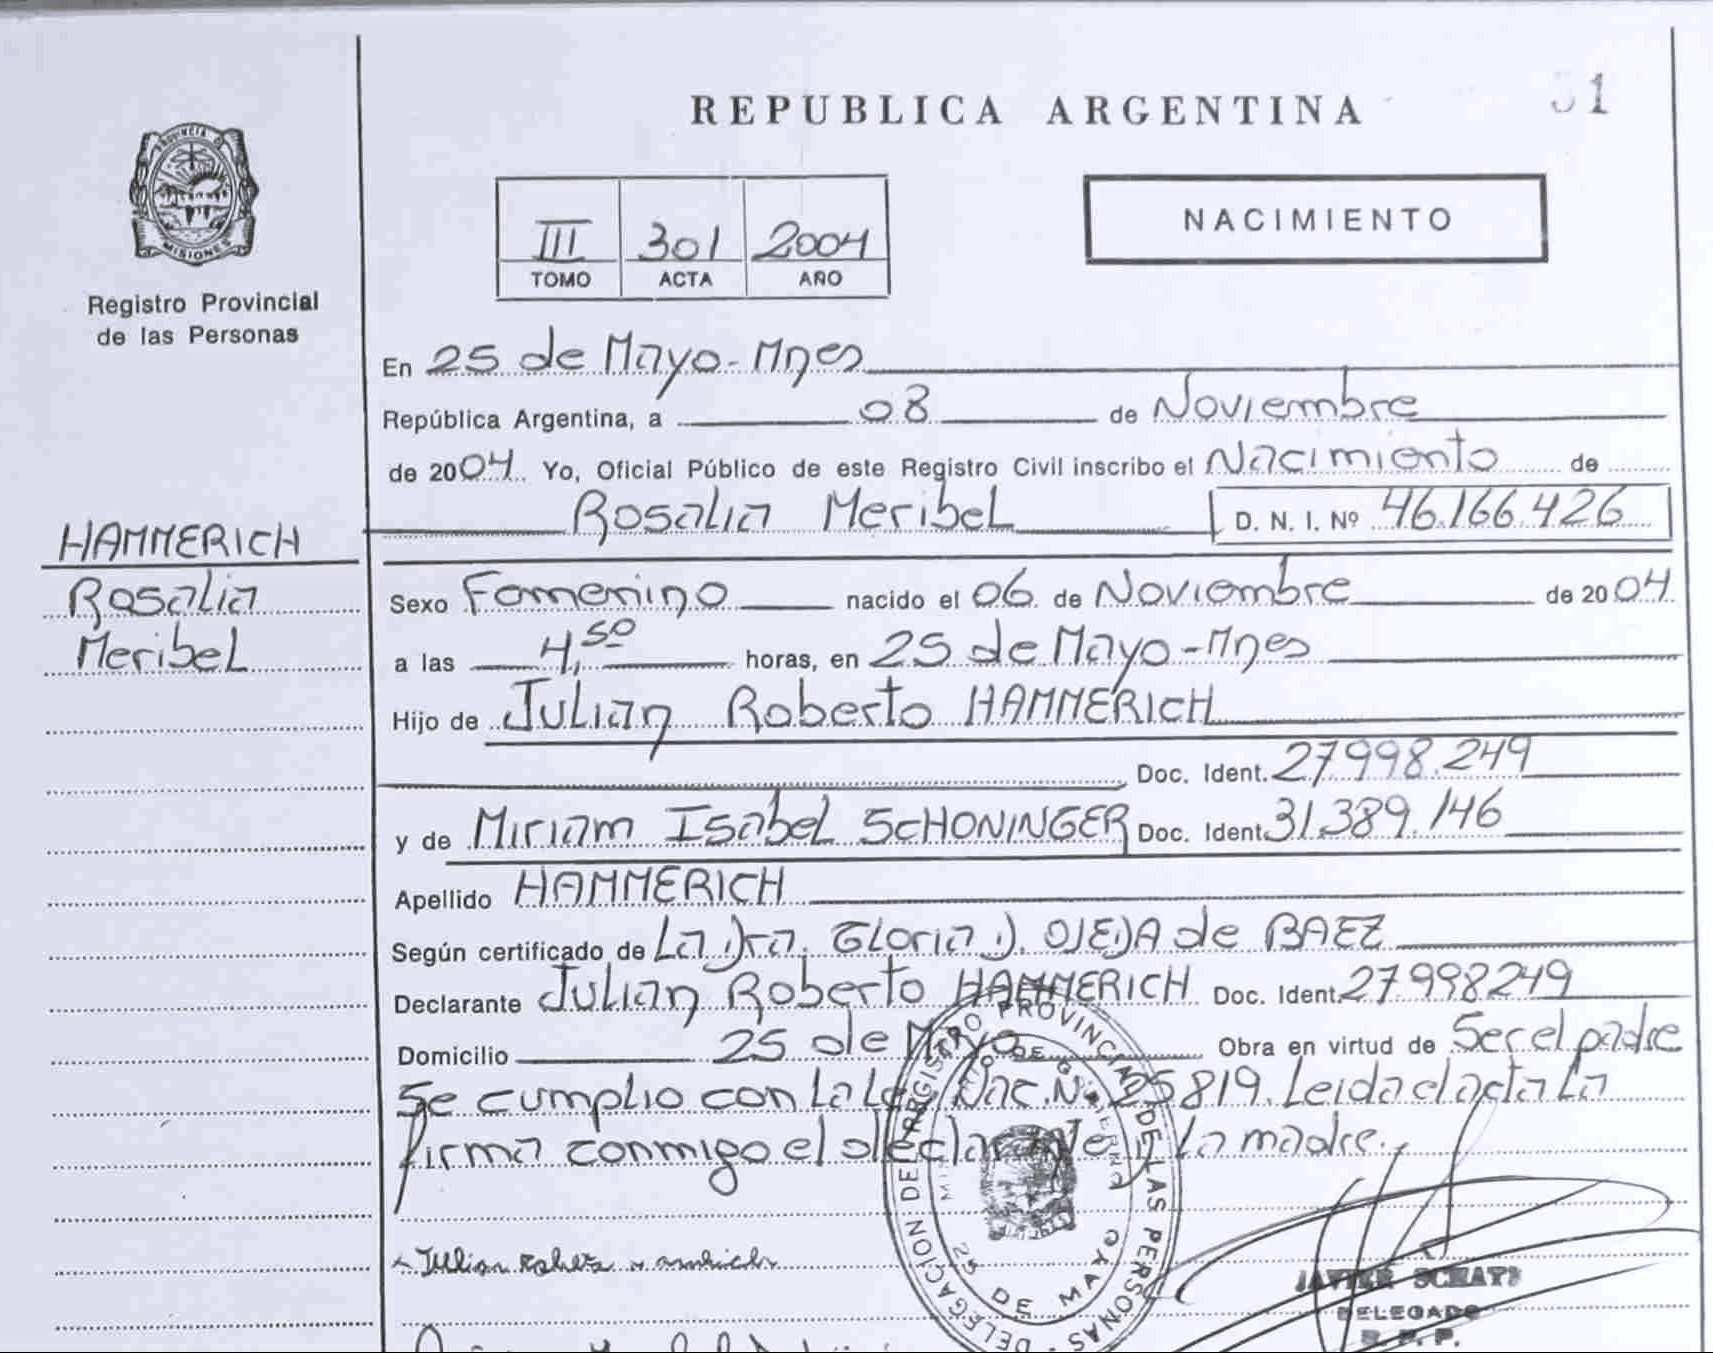 REPUBLICA ARGENTINA
31
PROVINCIA D
MISIONES
Registro Provincial
de las Personas
III 301 2004
TOMO ACTA AÑO
NACIMIENTO
En 25 de Mayo-Mnes
República Argentina, a 08 de Noviembre
de 2004. Yo, Oficial Público de este Registro Civil inscribo el Nacimiento de
Rosalia Meribel D. N. I. Nº 46.166.426
HAMMERICH
Rosalia
Meribel
Sexo Femenino nacido el 06 de Noviembre de 2004
a las 4,50 horas, en 25 de Mayo-Mnes
Hijo de Julian Roberto HAMMERICH
Doc. Ident. 27.998.249
y de Miriam Isabel SCHONINGER Doc. Ident 31.389.146
Apellido HAMMERICH
Según certificado de La Dra. Gloria D. OJEDA de BAEZ
Declarante Julian Roberto HAMMERICH Doc. Ident. 27998249
Domicilio 25 de Mayo Obra en virtud de Ser el padre
Se cumplio con la Ley Nac. Nº 25819. Leida el acta La
firma conmigo el declarante y La madre.
REGISTRO PROVINCIAL DE LAS PERSONAS - DELEGACION DE
MINISTERIO DE GOBIERNO
25 DE MAYO
Julian
JAVIER SCHATS
DELEGADO
R. P. P.